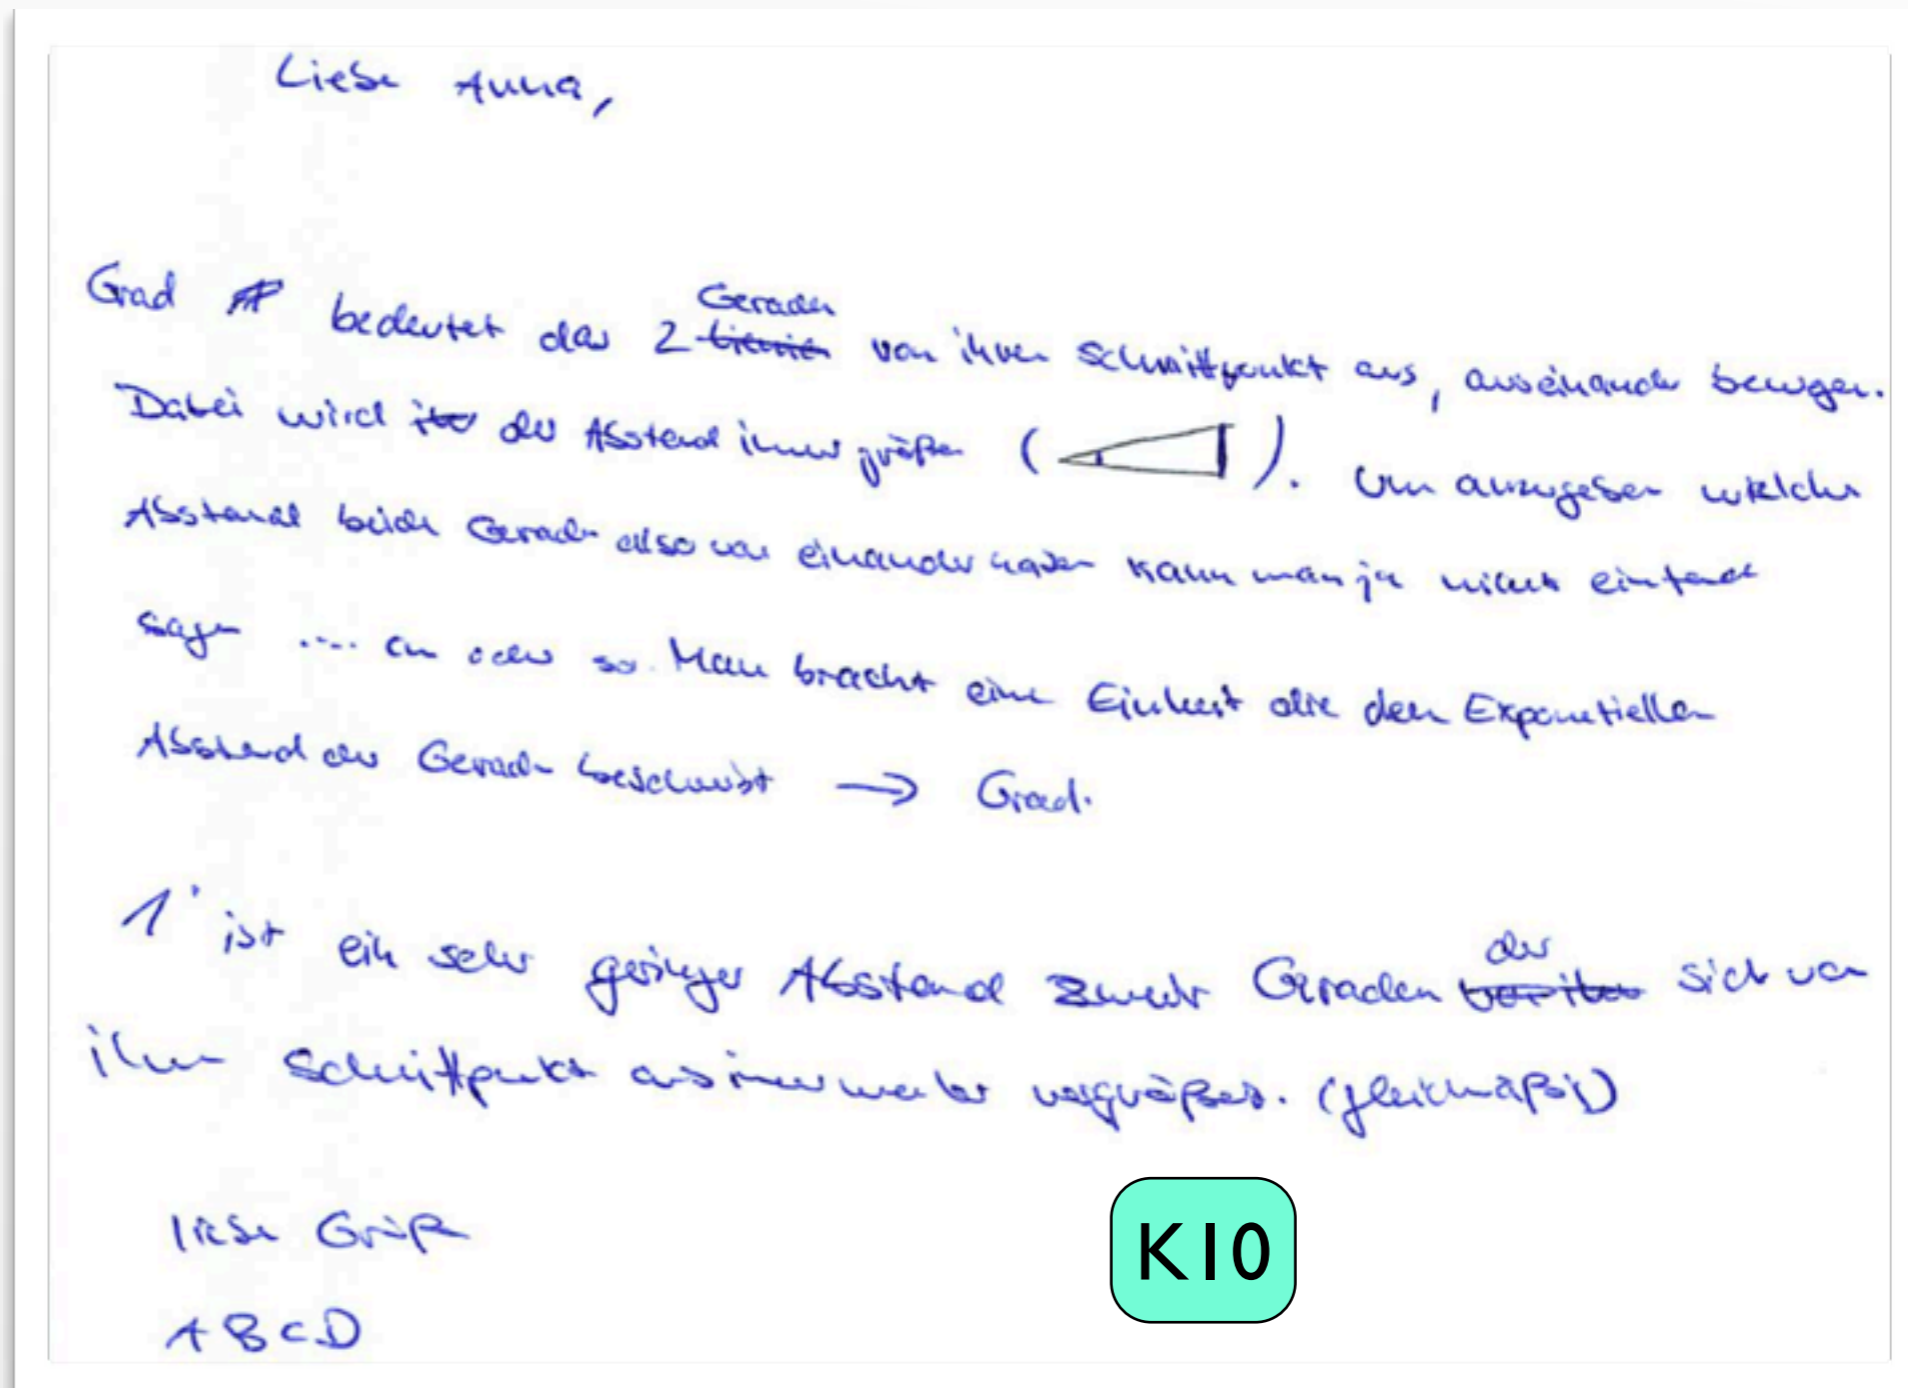 Liebe Anna,
Grad bedeutet das 2 Geraden von ihren Schnittpunkt aus, auseinander bewegen.
Dabei wird der Abstand immer größer ( ). Um anzugeben welchen
Abstand beide Geraden also von einander haben kann man ja nicht einfach
sagen .... cm oder so. Man bracht eine Einheit die den Exponentiellen
Abstand der Geraden beschreibt → Grad.
1° ist ein sehr geringer Abstand zweier Geraden der sich von
ihrem Schnittpunkt aus immer weiter vergrößert. (gleichmäßig)
liebe Grüße
ABCD
K10